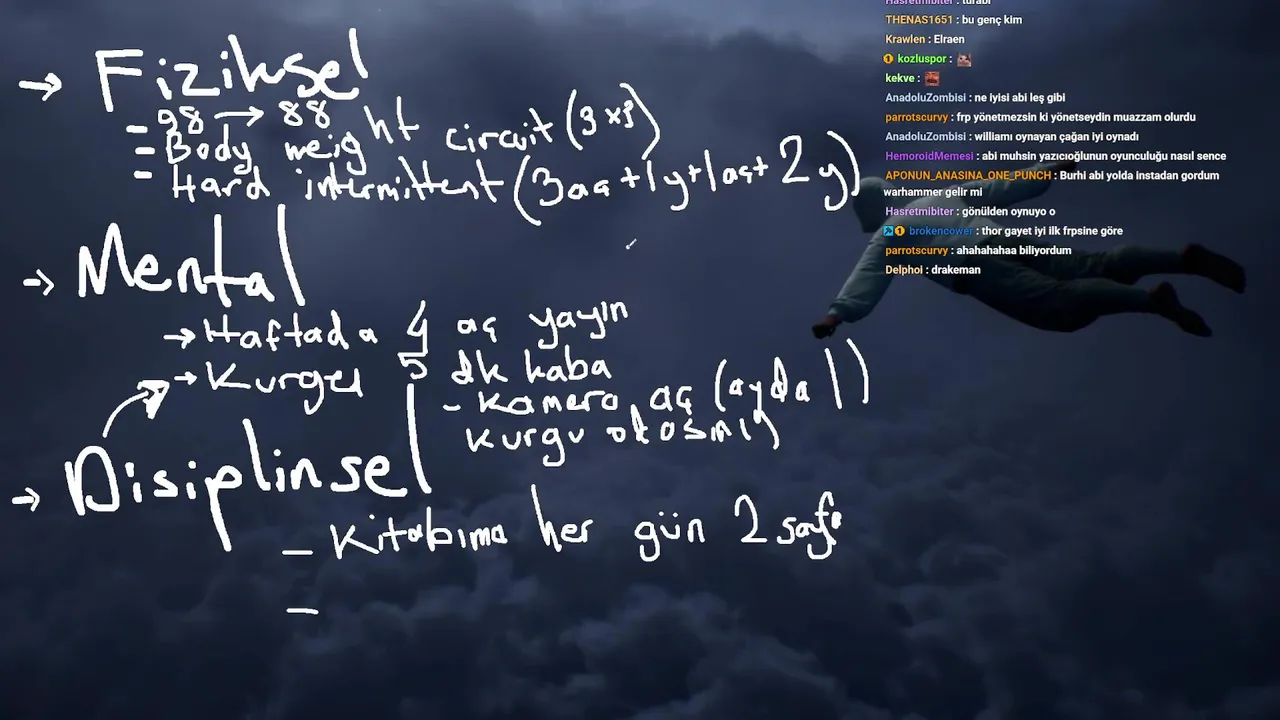 → Fiziksel
- 98 → 88
- Body weight circuit (3x3)
- Hard intermittent (3aç+1y+1aç+2y)
→ Mental
→ Haftada 4 aç yayın
→ Kurgu 5 dk kaba
- Kamera aç (ayda 1)
kurgu
→ Disiplinsel
- Kitabıma her gün 2 sayfa
-
Hasretmibiter : turabi
THENAS1651 : bu genç kim
Krawlen : Elraen
kozluspor :
kekve :
AnadoluZombisi : ne iyisi abi leş gibi
parrotscurvy : frp yönetmezsin ki yönetseydin muazzam olurdu
AnadoluZombisi : williamı oynayan çağan iyi oynadı
HemoroidMemesi : abi muhsin yazıcıoğlunun oyunculuğu nasıl sence
APONUN_ANASINA_ONE_PUNCH : Burhi abi yolda instadan gordum
warhammer gelir mi
Hasretmibiter : gönülden oynuyo o
brokencower : thor gayet iyi ilk frpsine göre
parrotscurvy : ahahahahaa biliyordum
Delphoi : drakeman